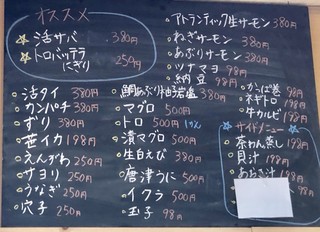 オススメ
☆活サバ 380円
☆トロバッテラ
にぎり 250円
活タイ 380円
カンパチ 380円
ずり 380円
笹イカ 198円
えんがわ 250円
サヨリ 250円
うなぎ 250円
穴子 250円
鯛あぶり柚子岩塩 380円
マグロ 500円
トロ 500円
漬マグロ 500円
生白えび 380円
唐津うに 500円
イクラ 500円
玉子 98円
アトランティック生サーモン 380円
ねぎサーモン 380円
あぶりサーモン 380円
ツナマヨ 98円
納豆 98円
かっぱ巻 98円
ネギトロ 198円
牛カルビ 198円
☆サイドメニュー☆
茶わん蒸し 198円
貝汁 198円
あら汁 198円